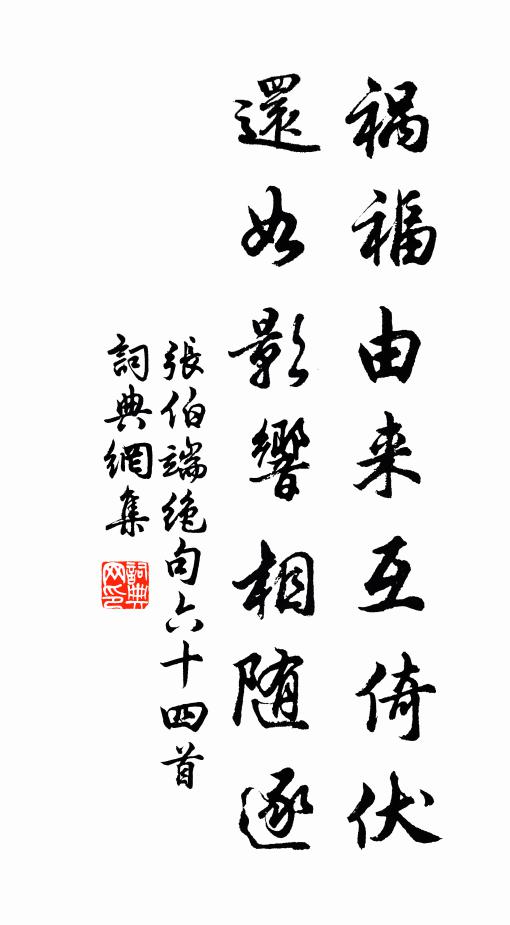 祸福由来互倚伏
還如影響相随逐
張伯端絶句六十四首
詞典網集
詞典网印